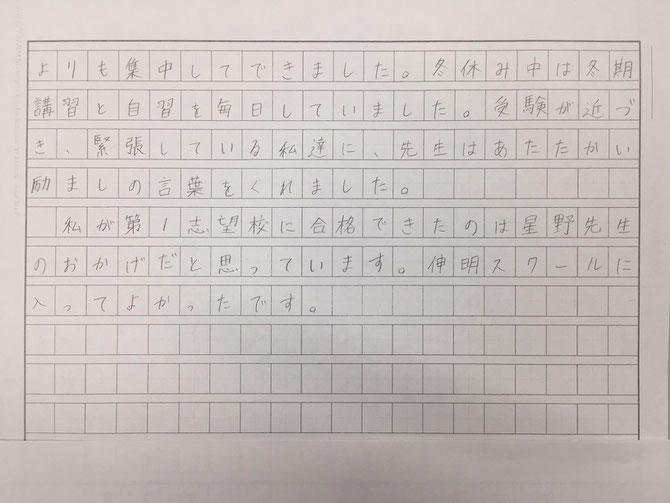 よりも集中してできました。冬休み中は冬期
講習と自習を毎日していました。受験が近づ
き、緊張している私達に、先生はあたたかい
励ましの言葉をくれました。
私が第1志望校に合格できたのは星野先生
のおかげだと思っています。伸明スクールに
入ってよかったです。